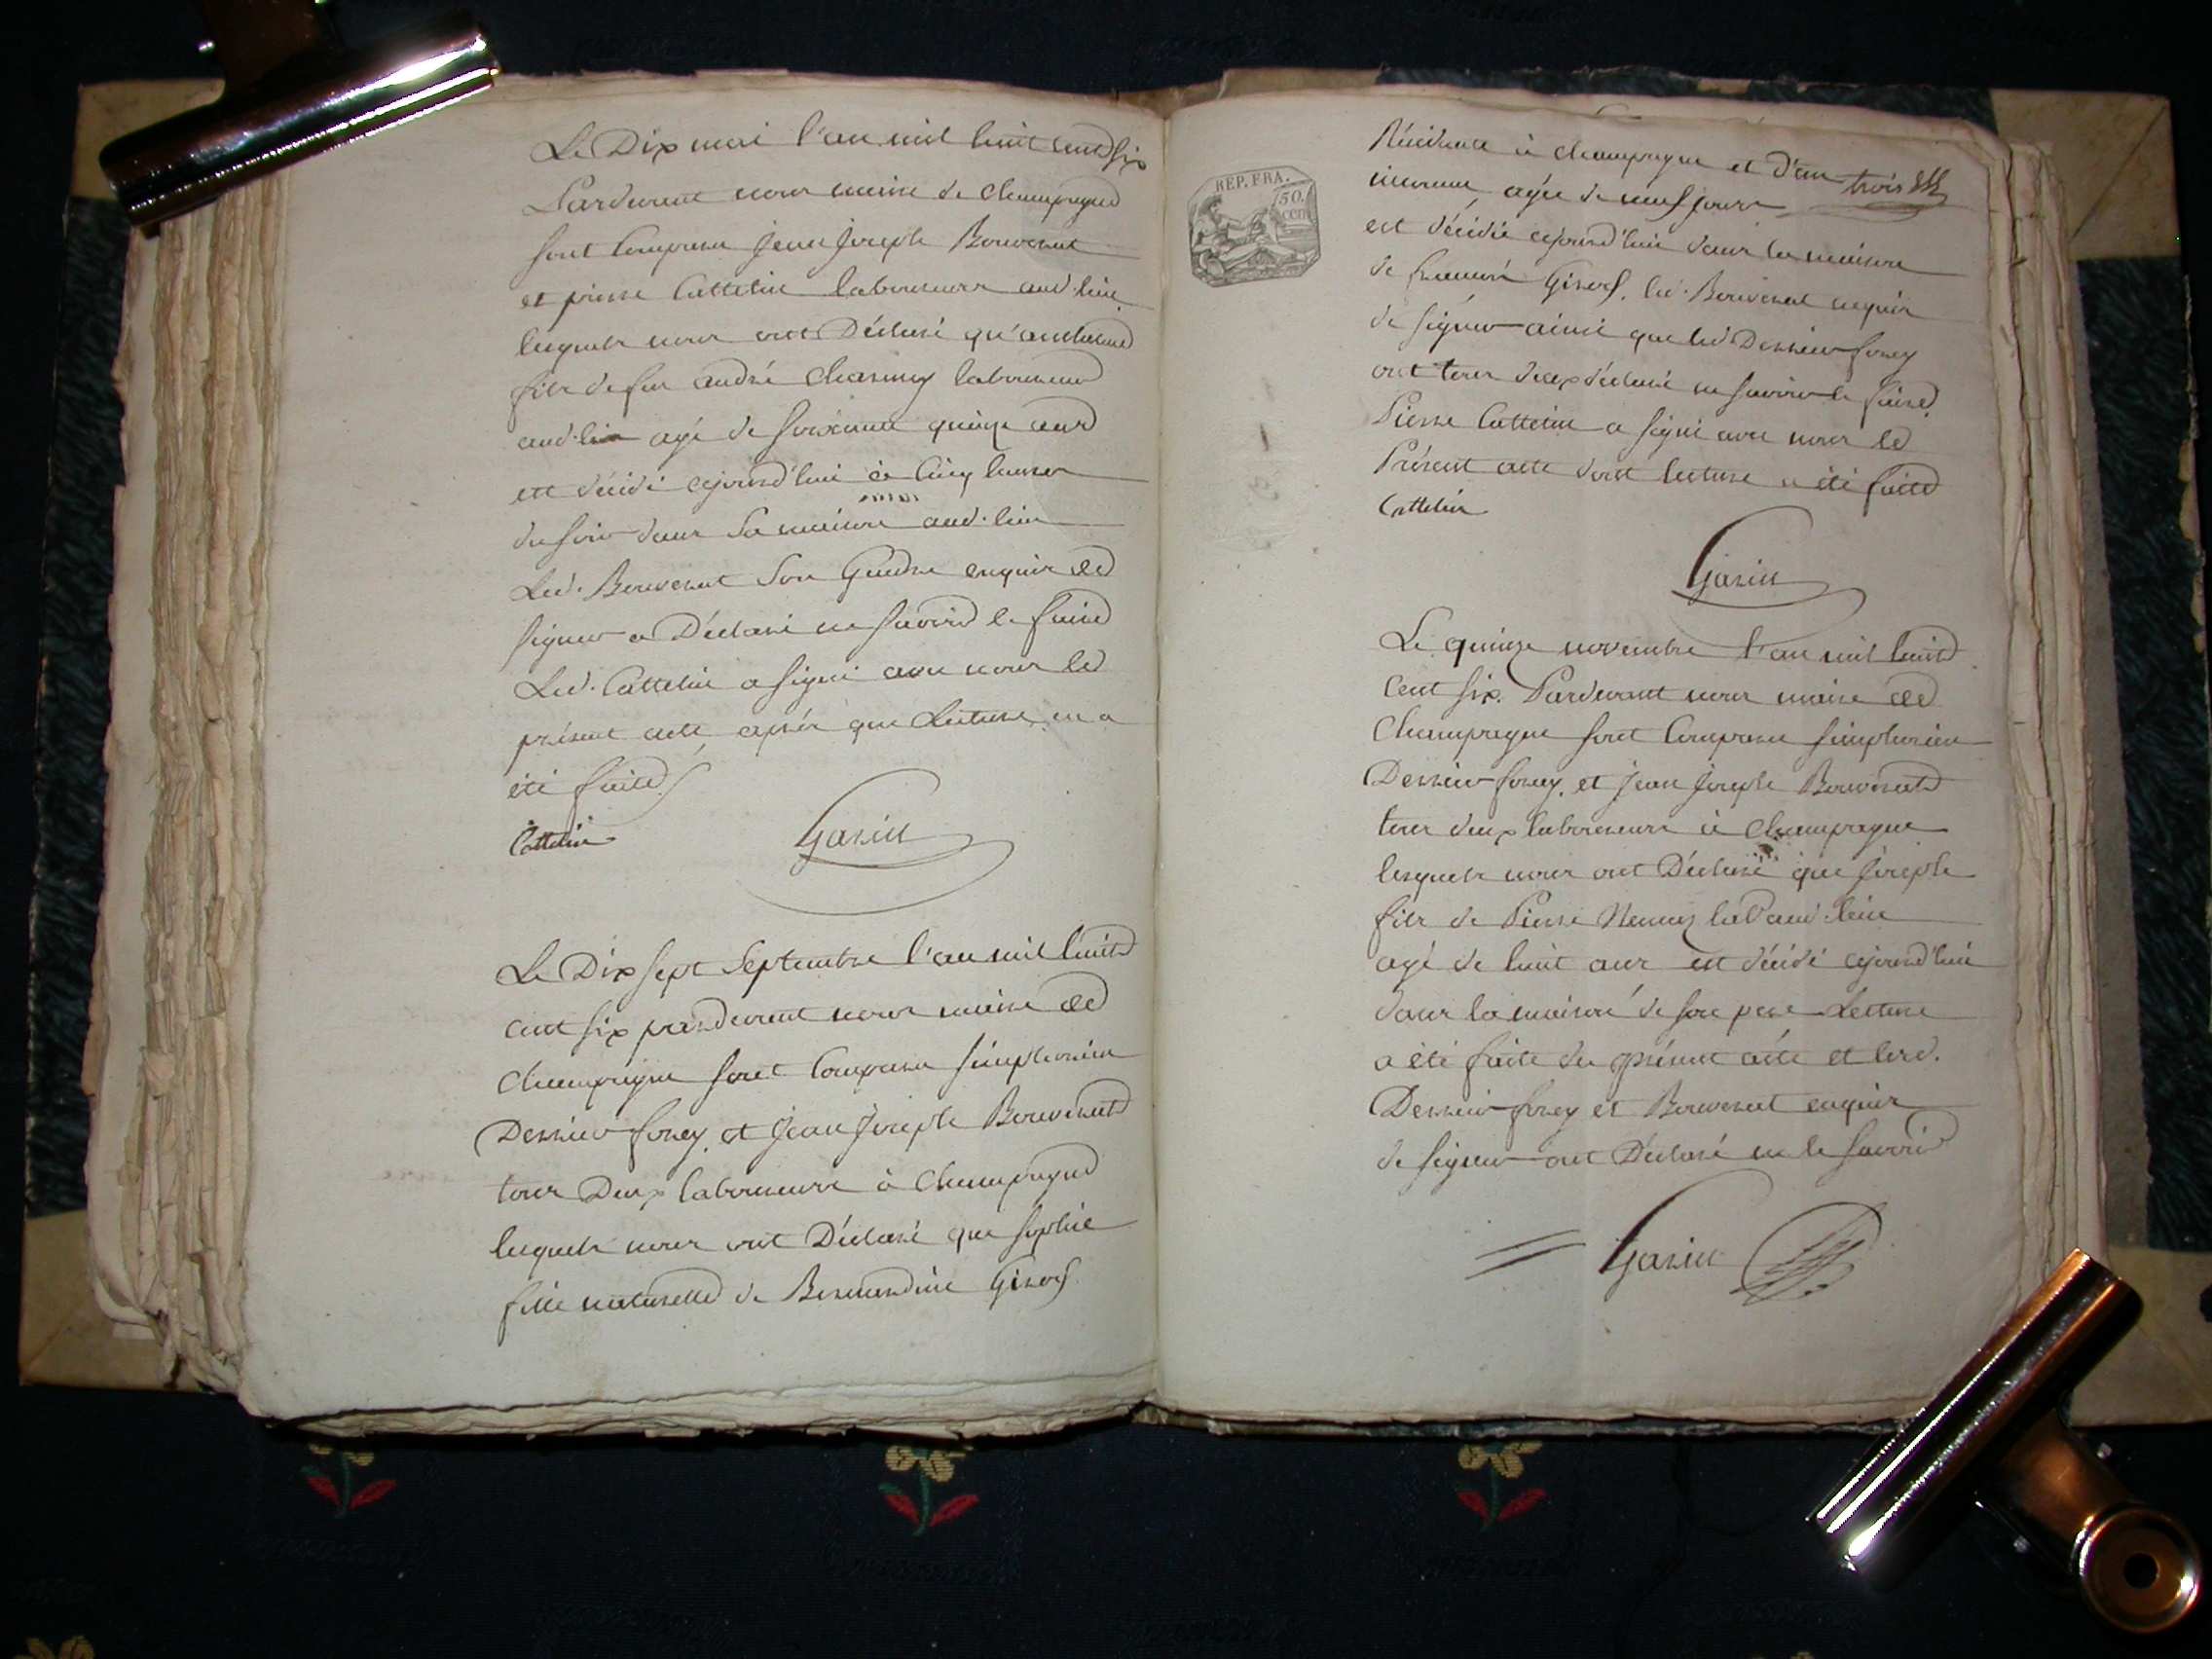 Le Dix mai l'an mil huit cent six
Pardevant nous maire de Champagne
sont Comparu Jean Joseph Bouvenat
et pierre Cattelin laboureurs aud. lieu
lesquels nous ont Déclaré qu'anthelme
fils de feu andré Charmey laboureur
aud. lieu agé de soixante quinze ans
est décédé cejourd'hui à Cinq heures
du soir dans sa maison aud. lieu
Led. Bouvenat son Gendre enquis de
signer a Déclaré ne savoir le faire
Led. Cattelin a signé avec nous le
présent acte, après que Lecture en a
été faite
Cattelin Garin
Le Dix sept Septembre l'an mil huit
cent six pardevant nous maire de
Champagne sont Comparu simphorien
Dernier forey, et Jean Joseph Bouvenat
tous Deux laboureurs à Champagne
lesquels nous ont Déclaré que sophie
fille naturelle de Bernardine Giros
REP. FRA.
50.
cen
Résidente à Champagne et d'un trois
inconnu, agée de neuf jours
est décédée cejourd'hui dans la maison
de Giros. led. Bouvenat enquis
de signer ainsi que led Dernier forey
ont tous deux déclaré ne savoir le faire
Pierre Cattelin a signé avec nous le
Présent acte dont lecture a été faite
Cattelin
Garin
Le quinze novembre l'an mil huit
Cent six. Pardevant nous maire de
Champagne sont Comparu simphorien
Dernier forey, et Jean Joseph Bouvenat
tous deux laboureurs à Champagne
lesquels nous ont Déclaré que Joseph
fils de Pierre lab. aud. lieu
agé de huit ans est décédé cejourd'hui
dans la maison de son pere Lecture
a été faite du présent acte et lesd.
Dernier forey et Bouvenat enquis
de signer ont Déclaré ne le savoir
Garin